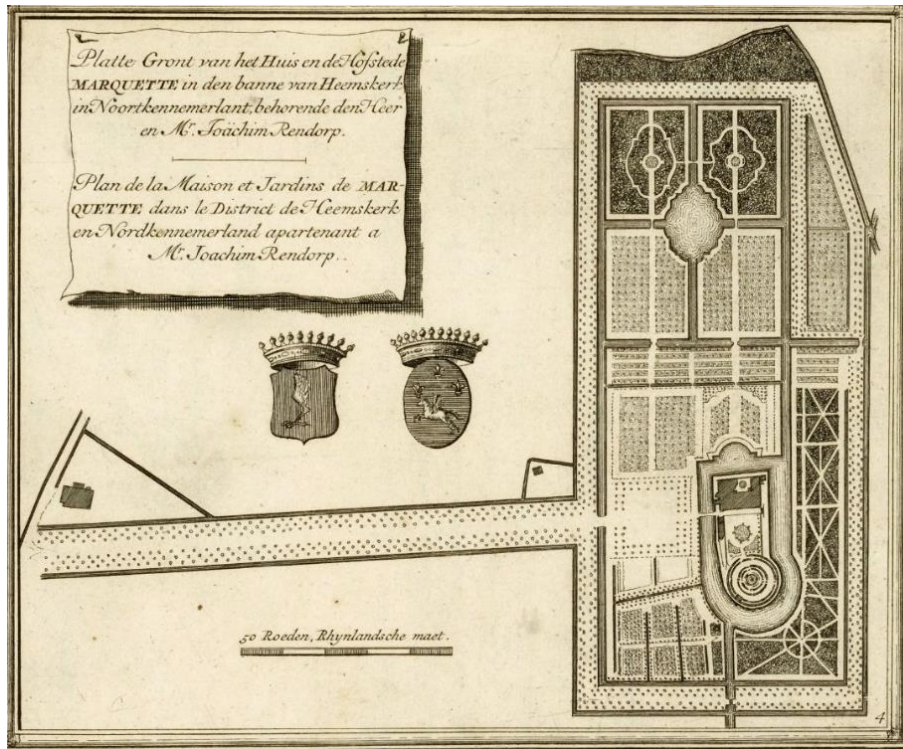 Platte Gront van het Huis en de Hofstede
MARQUETTE in den banne van Heemskerk
in Noortkennemerlant, behorende den Heer
en Mr. Joächim Rendorp.
Plan de la Maison et Jardins de MAR-
QUETTE dans le District de Heemskerk
en Nordkennemerland apartenant a
Mr. Joachim Rendorp..
50 Roeden, Rhynlandsche maet.
4